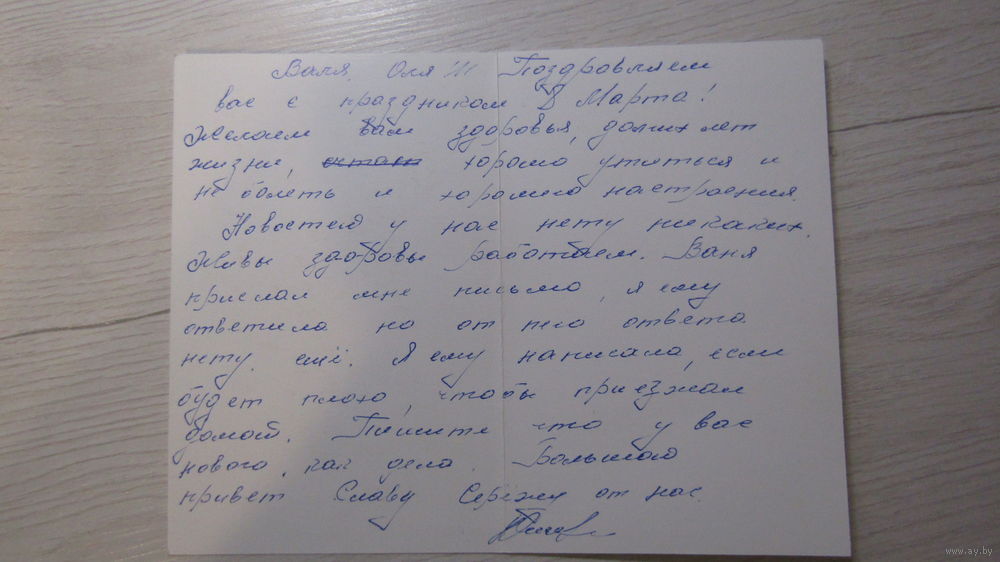 Валя, Оля!!! Поздровляем
вас с праздником 8 Марта!
Желаем вам здоровья, долгих лет
жизни, хорошо учиться и
не болеть и хорошего настроения.
Новостей у нас нету никаких.
Живы здоровы работаем. Ваня
прислал мне письмо, я ему
ответила но от него ответа
нету ещё. Я ему написала, если
будет плохо, чтобы приезжал
домой. Пишите что у вас
нового, как дела. Большой
привет Славу Серёжу от нас.
www.ay.by